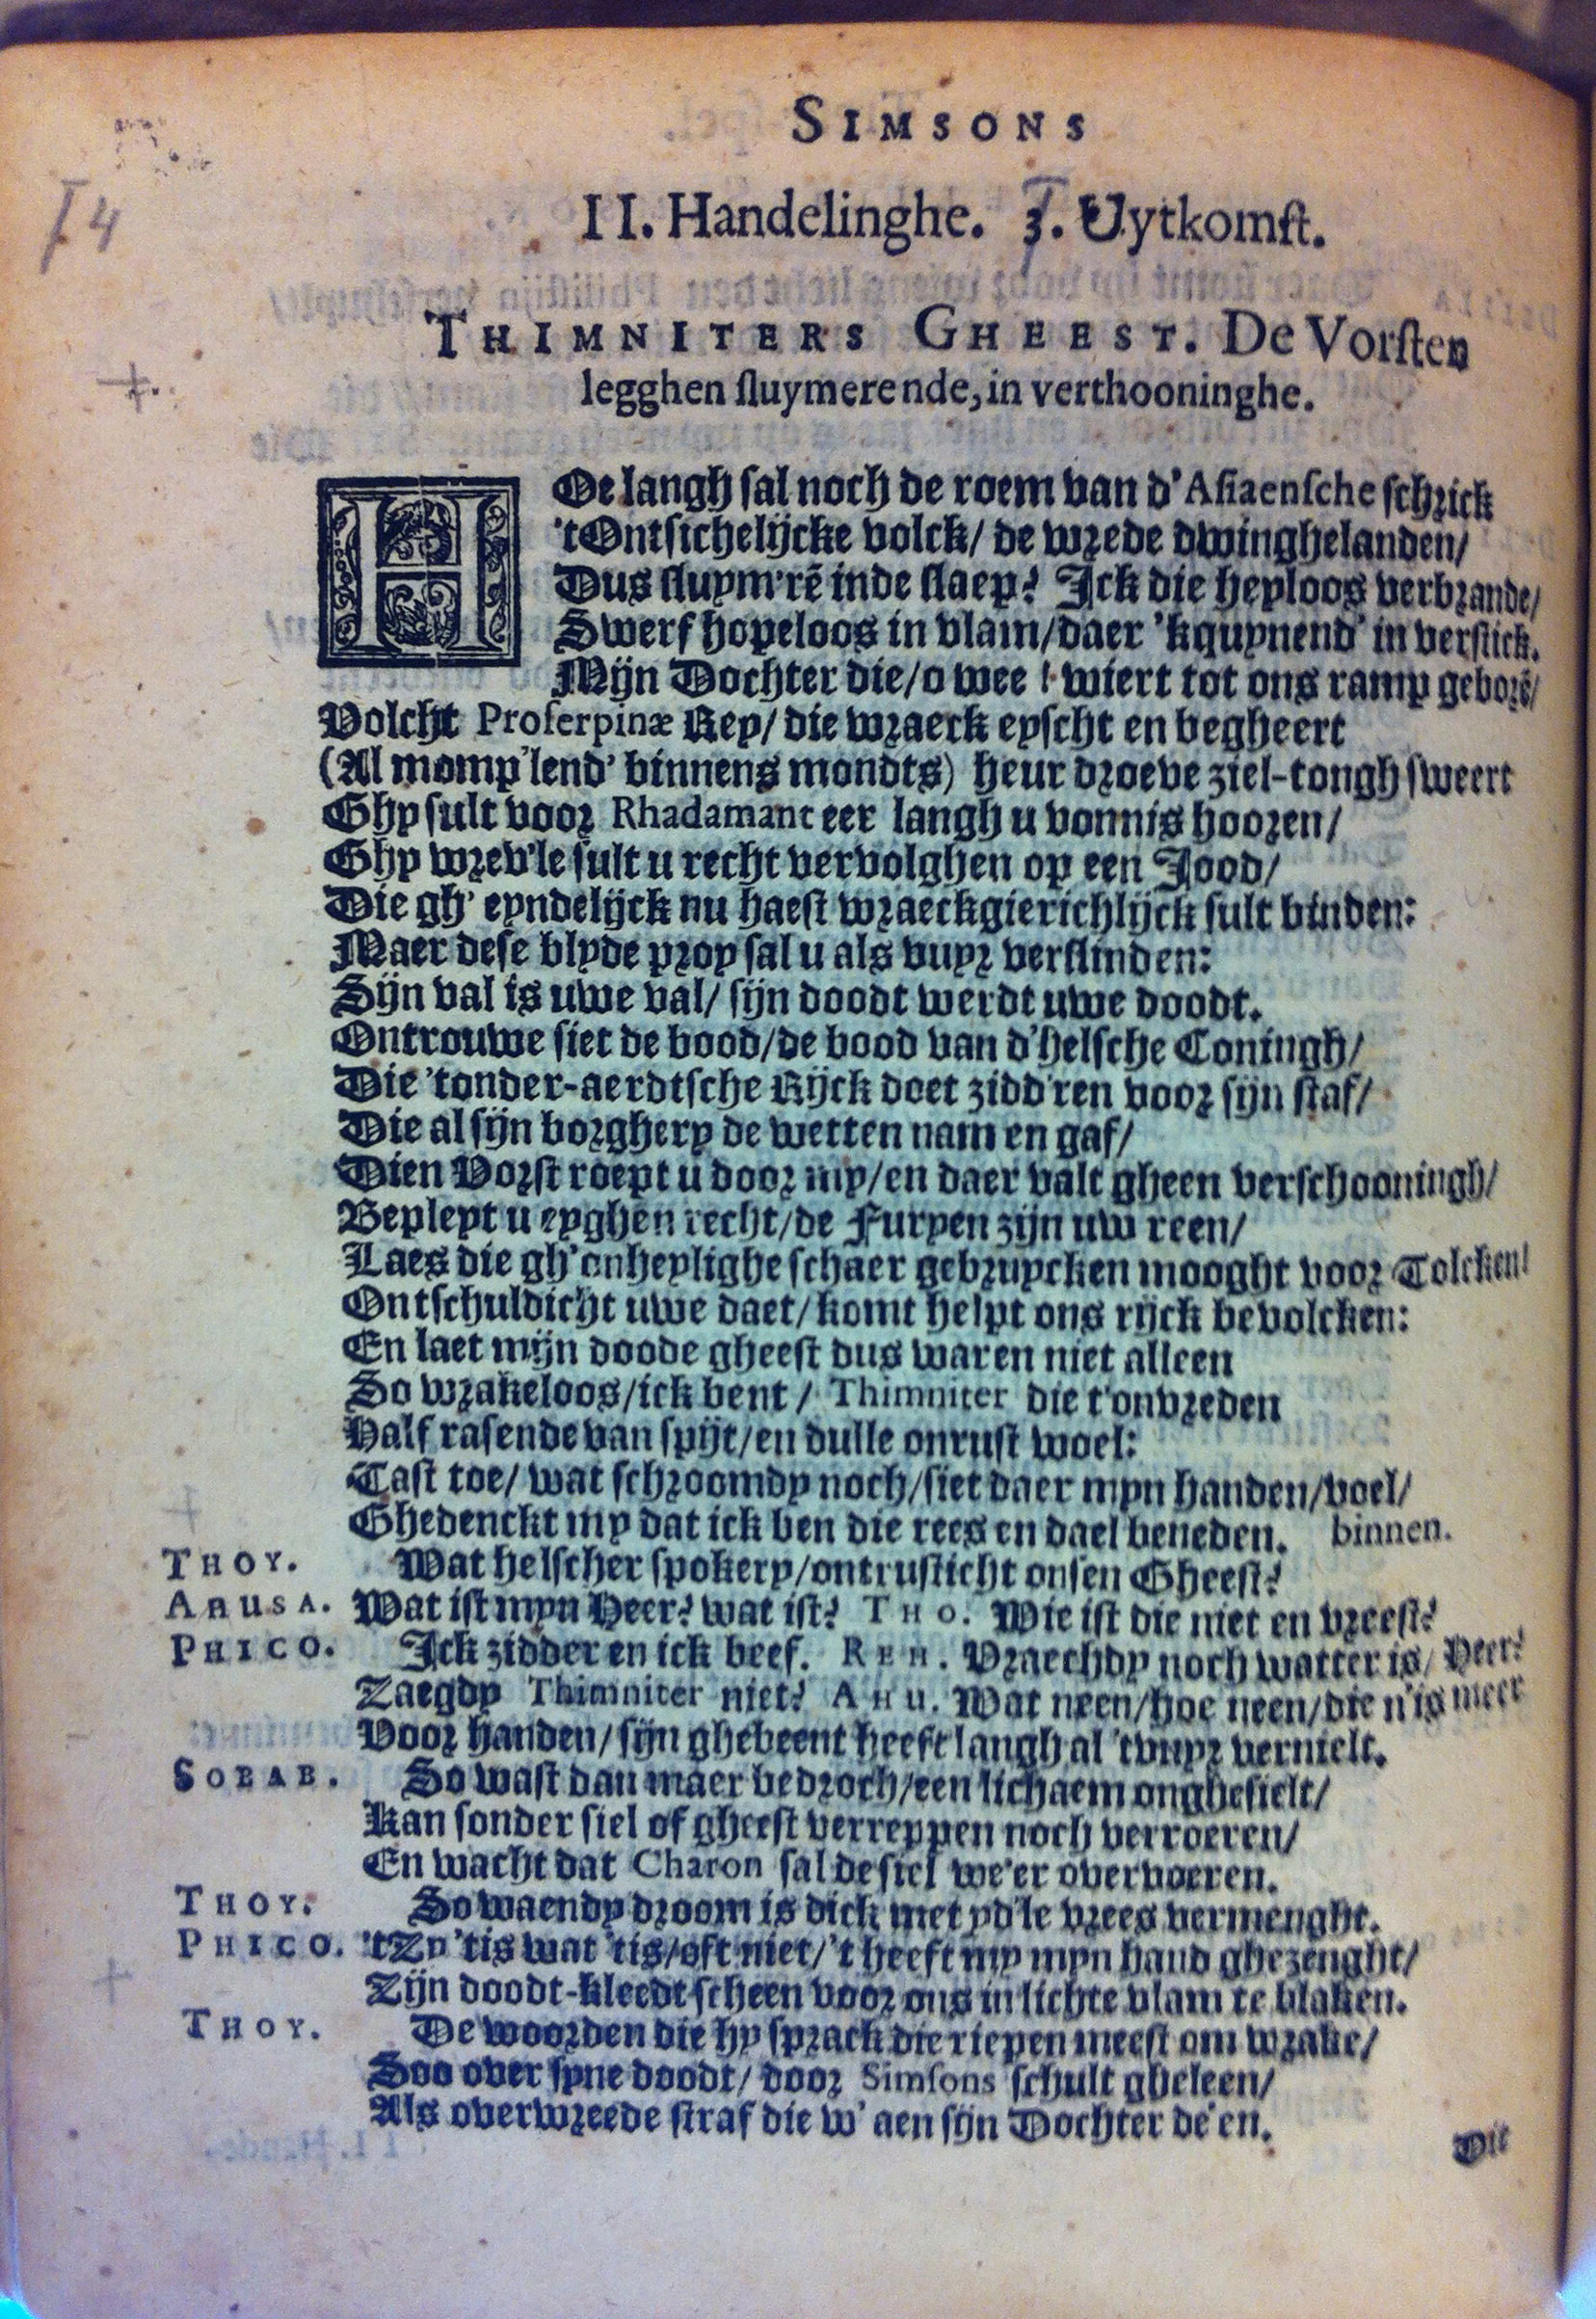 SIMSONS
14
II. Handelinghe. 3. Uytkomst.
THIMNITERS GHEEST. De Vorsten
legghen sluymerende, in verthooninghe.
HOe langh sal noch de roem van d'Asiaensche schrick
'tOntsichelijcke volck/ de wrede dwinghelanden/
Dus sluym'rē inde slaep? Ick die heyloos verbrande/
Swerf hopeloos in vlam/daer 'kquynend' in verstick.
Mijn Dochter die/o wee! wiert tot ons ramp geborē/
Volcht Proserpinæ Rey/ die wraeck eyscht en begheert
(Al momp'lend' binnens mondts) heur droeve ziel-tongh sweert
Ghy sult voor Rhadamant eer langh u vonnis hooren/
Ghy wrev'le sult u recht vervolghen op een Jood/
Die gh' eyndelijck nu haest wraeckgierichlijck sult binden:
Maer dese blyde proy sal u als vuyr verslinden:
Sijn val is uwe val/ sijn doodt werdt uwe doodt.
Ontrouwe siet de bood/de bood van d'helsche Coningh/
Die 'tonder-aerdtsche Rijck doet zidd'ren voor sijn staf/
Die al sijn borghery de wetten nam en gaf/
Dien Vorst roept u door my/en daer valt gheen verschooningh/
Bepleyt u eyghen recht/de Furyen zijn uw reen/
Laes die gh'onheylighe schaer gebruycken mooght voor Tolcken!
Ontschuldicht uwe daet/komt helpt ons rijck bevolcken:
En laet mijn doode gheest dus waren niet alleen
So wrakeloos/ick bent/ Thimniter die t'onvreden
Half rasende van spijt/en dulle onrust woel:
Tast toe/ wat schroomdy noch/siet daer myn handen/voel/
Ghedenckt my dat ick ben die rees en dael beneden. binnen.
THOY. Wat helscher spokery/ontrusticht onsen Gheest?
AHUSA. Wat ist myn Heer? wat ist? THO. Wie ist die niet en vreest?
PHICO. Ick zidder en ick beef. REH. Vraechdy noch watter is/ Heer?
Zaegdy Thimniter niet? AHU. Wat neen/hoe neen/die n'is meer
Voor handen/sijn ghebeent heeft langh al 'tvuyr vernielt.
SOBAB. So wast dan maer bedroch/een lichaem onghesielt/
Kan sonder siel of gheest verreppen noch verroeren/
En wacht dat Charon sal de siel we'er overvoeren.
THOY. So waendy droom is dick met yd'le vrees vermenght.
PHICO. 'tZy 'tis wat 'tis/oft niet/'t heeft my myn hand ghezenght/
Zijn doodt-kleedt scheen voor ons in lichte vlam te blaken.
THOY. De woorden die hy sprack die riepen meest om wrake/
Soo over syne doodt/ door Simsons schult gheleen/
Als overwreede straf die w' aen sijn Dochter de'en.
Dit